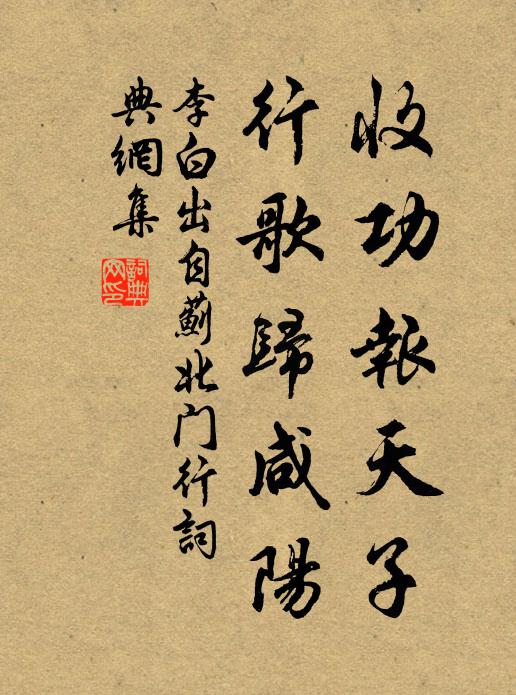 收功報天子
行歌歸咸陽
李白出自薊北門行詞
典網集
詞典
网印